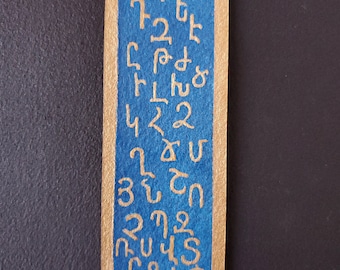 Դ Ե
Զ Է
Ը Թ Ժ
Ի Լ Խ Ծ
Կ Հ Ձ
Ղ Ճ Մ
Յ Ն Շ Ո
Չ Պ Ջ
Ռ Ս Վ Տ